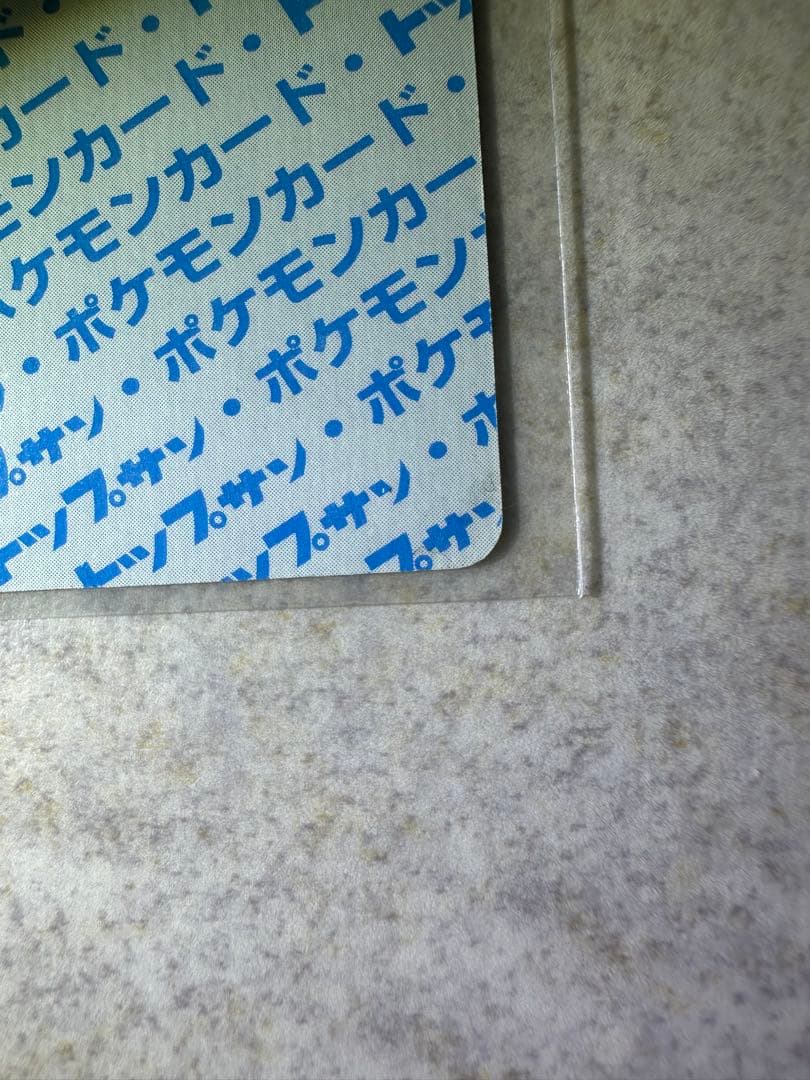 ド・
カード・ト
モンカード・トッ
ポケモンカード・
・ポケモンカー
・ポケモン
トップサン・ポケモ
トップサン・ポ
トップサン・
プサン